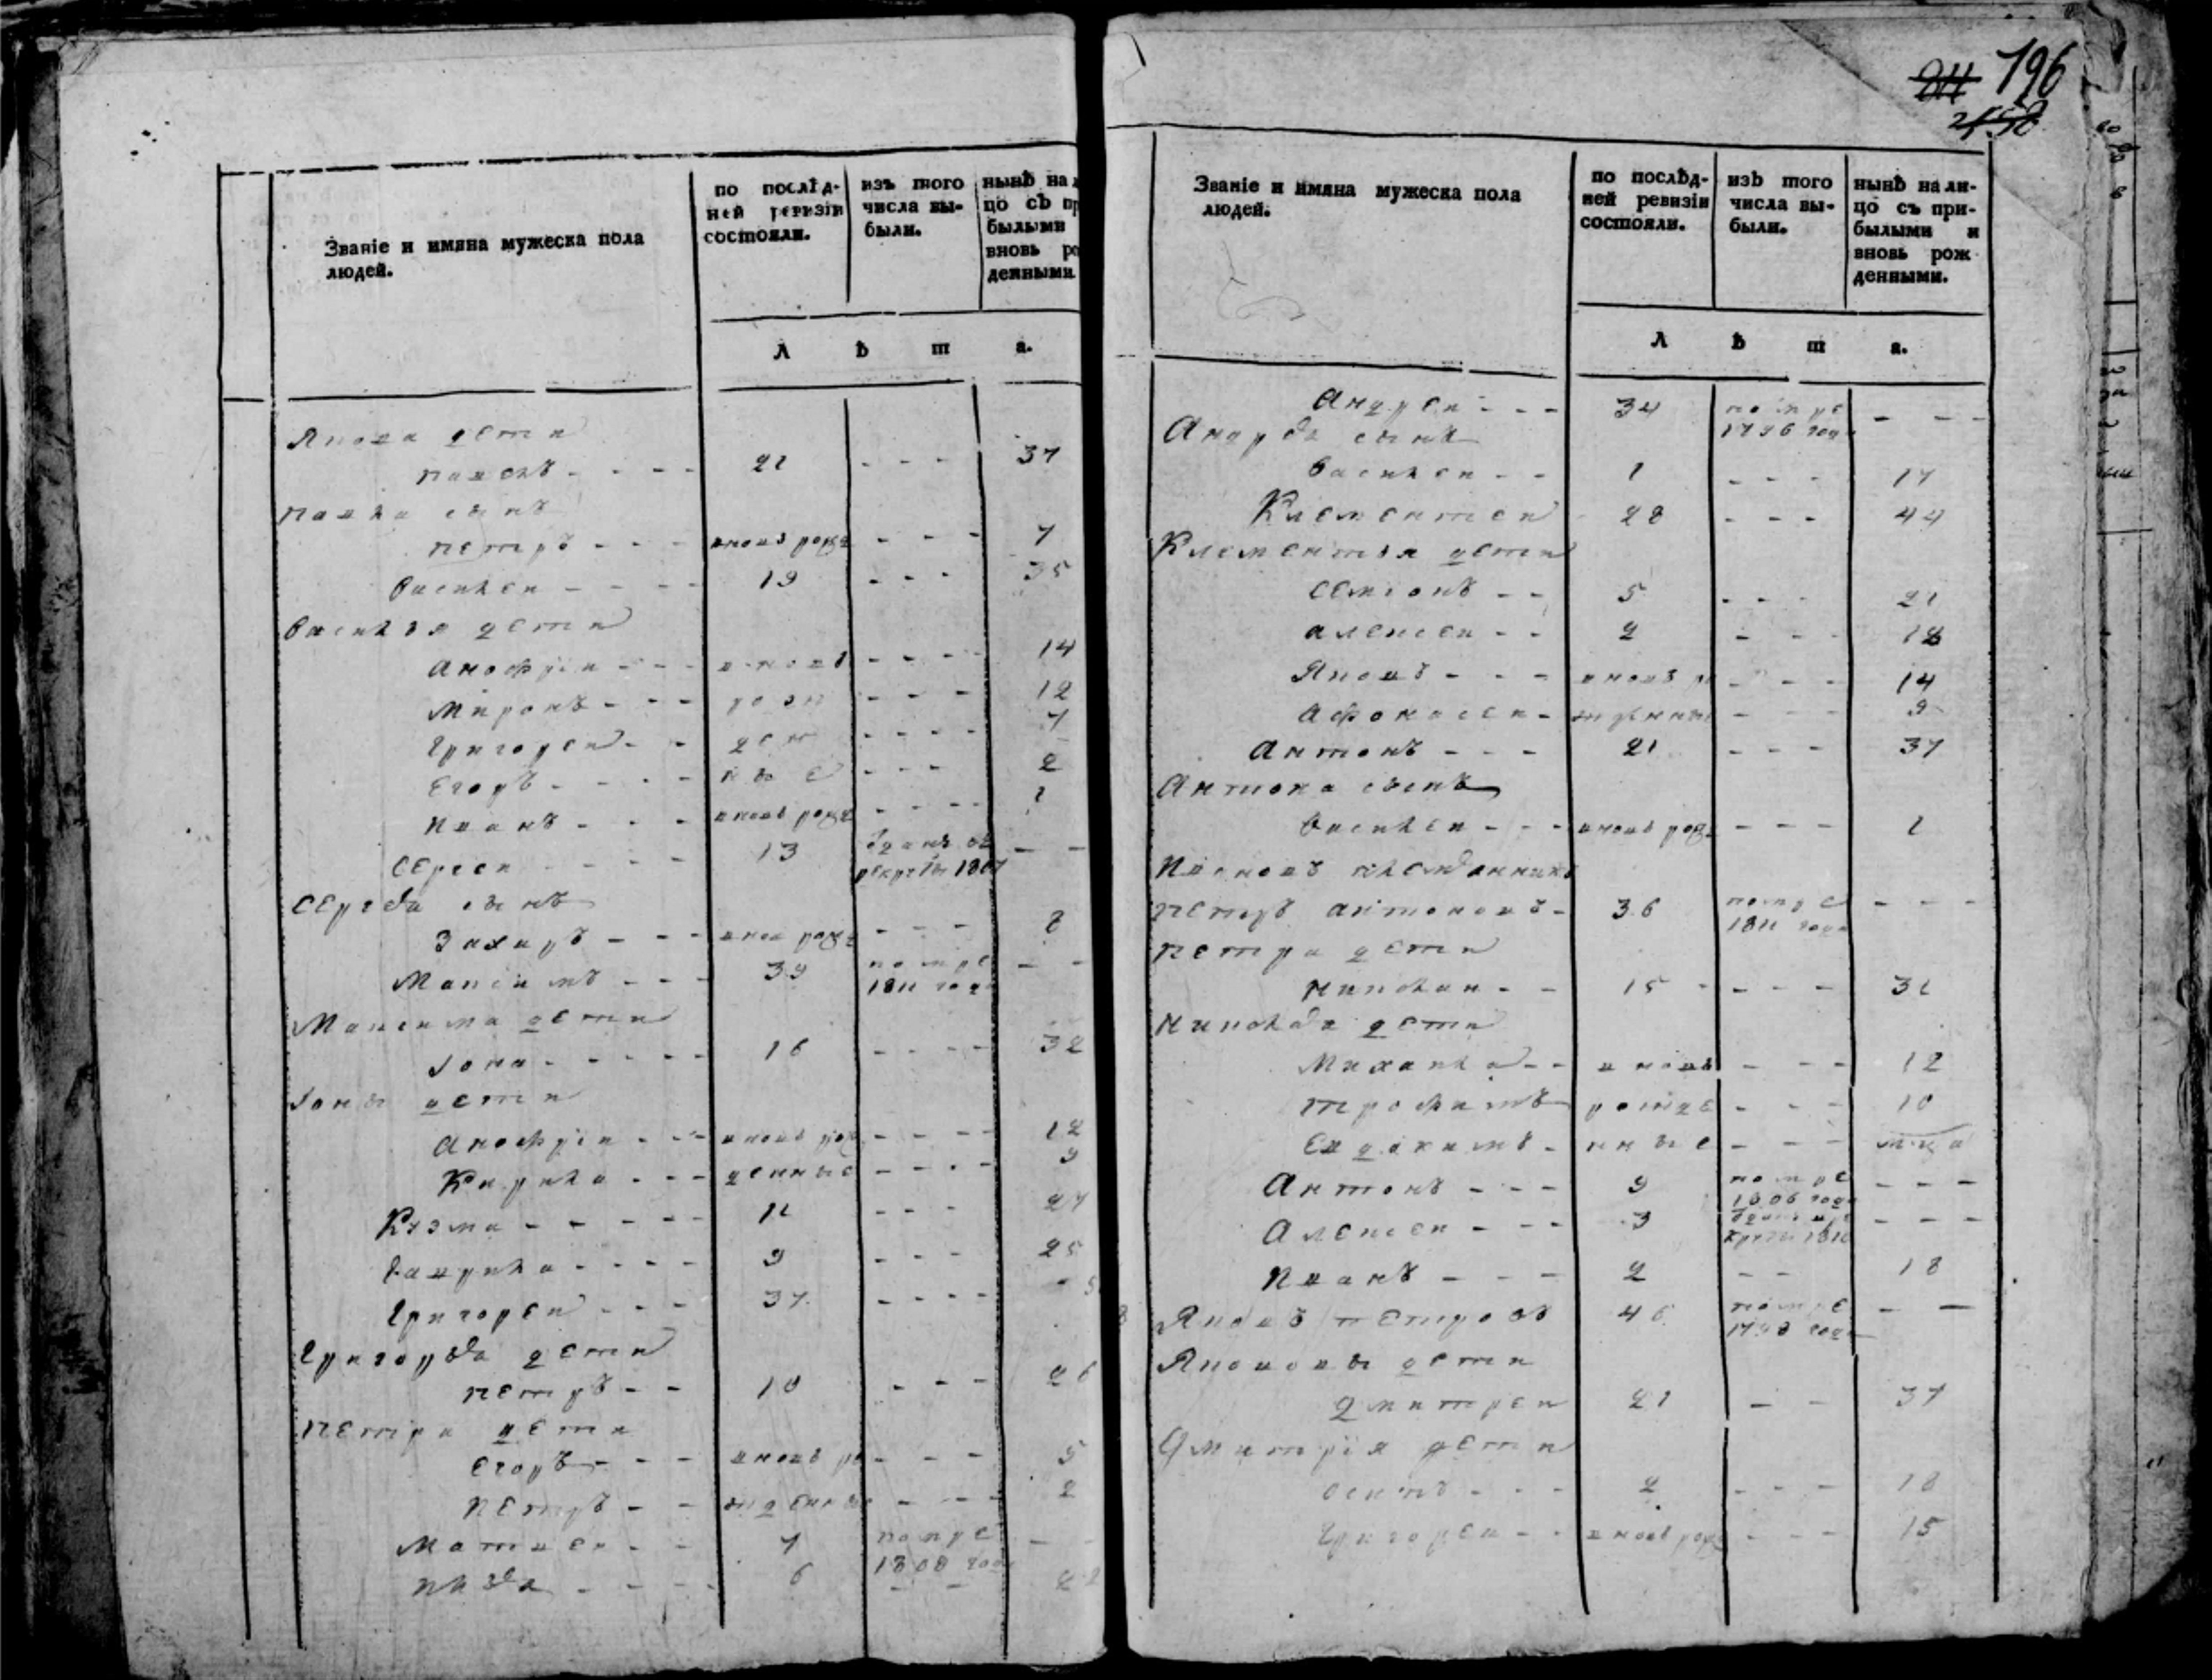 Званіе и имяна мужеска пола людей.
по послѣдней ревизіи состояли.
изъ того числа выбыли.
нынѣ нали
цо съ при
былыми
вновь рож
денными
лѣта.
Якова дети
Павелъ - - - - 21 - - - 37
Павла сынъ
Петръ - - - вновь рожд - - - 7
Василеи - - - - 19 - - - 35
Василья дети
Анофріи - - - вновь - - - - 14
Миронъ - - - рож - - - 12
Григореи - - ден - - - - 7
Егоръ - - - - ные - - - 2
Иванъ - - - вновь рожд - - - - 1
Сергеи - - - - 13 отданъ въ рекруты 1807 - -
Сергѣя сынъ
Захаръ - - - внов рожд - - - 8
Максимъ - - - 39 помре 1811 года - -
Максима дети
Иона - - - - - 16 - - - - 32
Ионы дети
Анофріи - - - вновь рож - - - - 12
Кирила - - - денные - - - - 9
Кузма - - - - - 11 - - - 27
Гаврила - - - - 9 - - - 25
Григореи - - - 37 - - - -
Григорья дети
Петръ - - 10 - - - 26
Петра дети
Егоръ - - - вновь ро - - - 5
Петръ - - жденные - - - 2
Матвеи - - 7 помре 1808 года - -
Илья - - - - 6 - - 22
196
Званіе и имяна мужеска пола людей.
по послѣдней ревизіи состояли.
изъ того числа выбыли.
нынѣ нали-
цо съ при-
былыми и
вновь рож
денными.
лѣта.
Андреи - - - 34 помре 1796 года - - -
Андрея сынъ
Василеи - - 1 - - - 17
Клементеи - 28 - - - 44
Клементья дети
Семіонъ - - 5 - - - 21
Алексеи - - 2 - - - 18
Яковъ - - - вновь ро - - - 14
Афонасеи - жденны - - - 9
Антонъ - - - 21 - - - 37
Антона сынъ
Василеи - - - вновь рож - - - 1
Петръ Антоновъ - 36 помре 1811 года - - -
Петра дети
Николаи - - 15 - - - - 31
Николая дети
Михаила - - вновь - - - 12
Трофимъ рожде - - - 10
Евдокимъ - нные - - -
Антонъ - - - 9 помре 1806 года - - -
Алексеи - - - 3 - - -
Иванъ - - - 2 - - 18
Яковъ Петровъ 46 помре 1798 года - -
Якововы дети
Дмитреи 21 - - 37
Дмитрія дети
Осипъ - - - 2 - - - 18
Григореи - - вновь рожд - - - 15